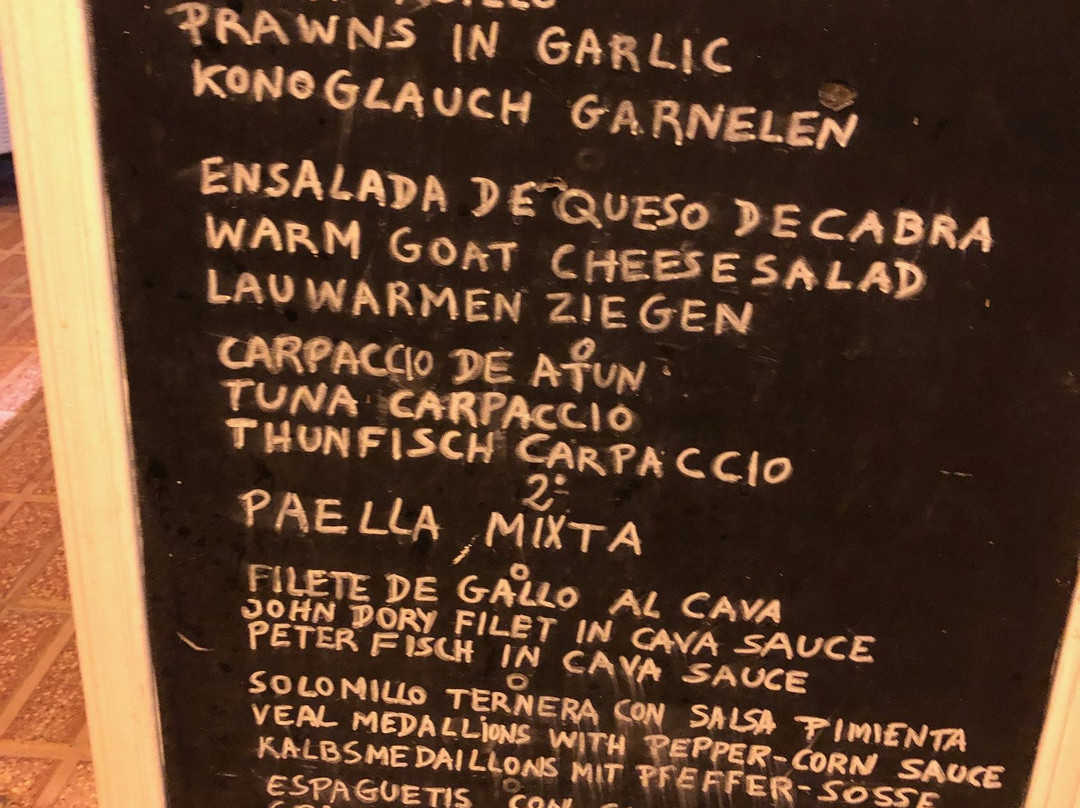 PRAWNS IN GARLIC
KONOGLAUCH GARNELEN
O
ENSALADA DE QUESO DE CABRA
WARM GOAT CHEESE SALAD
LAUWARMEN ZIEGEN
O
CARPACCIO DE ATUN
TUNA CARPACCIO
THUNFISCH CARPACCIO
2º
PAELLA MIXTA
O
FILETE DE GALLO AL CAVA
JOHN DORY FILET IN CAVA SAUCE
PETER FISCH IN CAVA SAUCE
O
SOLOMILLO TERNERA CON SALSA PIMIENTA
VEAL MEDALLiONS WITH PEPPER-CORN SAUCE
KALBSMEDAILLONS MIT PFEFFER-SOSSE
O
ESPAGUETIS CON